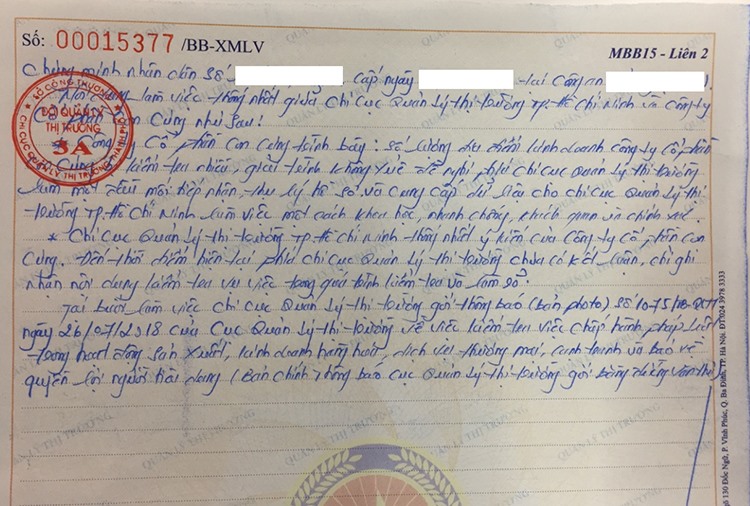 Số: 00015377 /BB-XMLV
MBB15 - Liên 2
Chứng minh nhân dân số cấp ngày tại Công an
Nội dung làm việc thống nhất giữa Chi cục Quản Lý thị trường TP. Hồ Chí Minh và Công ty
Cổ phần Con Cưng như sau:
Công ty Cổ phần Con Cưng trình bày: Số lượng địa điểm kinh doanh công ty cổ phần
Con Cưng kiểm tra nhiều, giải trình không xuể đề nghị phía Chi cục Quản lý thị trường
làm một đầu mối tiếp nhận, thụ lý hồ sơ và Cung cấp dữ liệu cho chi cục Quản lý thị
trường TP. Hồ Chí Minh làm việc một cách khoa học, nhanh chóng, khách quan và chính xác.
* Chi cục Quản Lý thị trường TP. Hồ Chí Minh thống nhất ý kiến của Công ty Cổ phần Con
Cưng. Đến thời điểm hiện tại phía Chi cục Quản lý thị trường chưa có kết luận, chỉ ghi
nhận nội dung kiểm tra vụ việc trong quá trình kiểm tra và làm rõ.
Tại buổi làm việc Chi cục Quản Lý thị trường gởi thông báo (bản photo) số 1075
ngày 26/07/2018 của Cục Quản Lý thị trường về việc kiểm tra việc chấp hành pháp luật
trong hoạt động sản xuất, kinh doanh hàng hóa, dịch vụ thương mại, cạnh tranh và bảo vệ
quyền lợi người tiêu dùng (Bản chính thông báo Cục Quản Lý thị trường gởi bằng đường văn thư)
BỘ CÔNG THƯƠNG
ĐỘI QUẢN LÝ
THỊ TRƯỜNG
3A
CHI CỤC QUẢN LÝ THỊ TRƯỜNG THÀNH PHỐ
QUẢN LÝ THỊ TRƯỜNG
130 Đốc Ngữ, P. Vĩnh Phúc, Q. Ba Đình, TP Hà Nội. ĐT:024 3978 3333